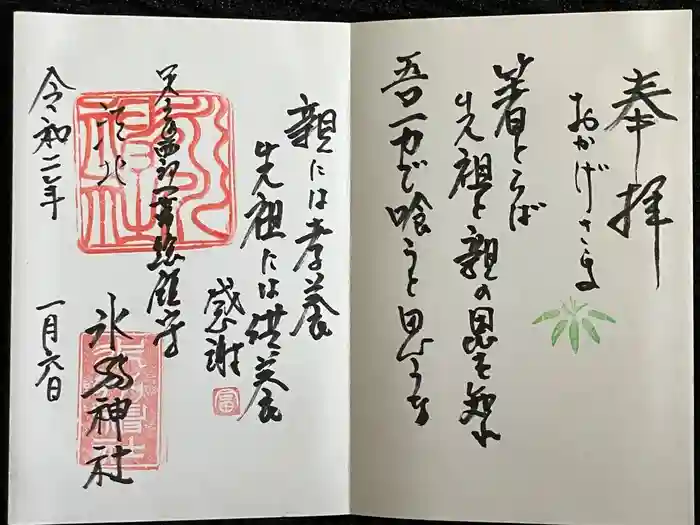 奉拝
おかげさま
箸とらば
先祖と親の恩を知れ
吾一力で喰うと思うな
親には孝養
先祖には供養
感謝
総鎮守
氷川神社
令和二年
一月六日